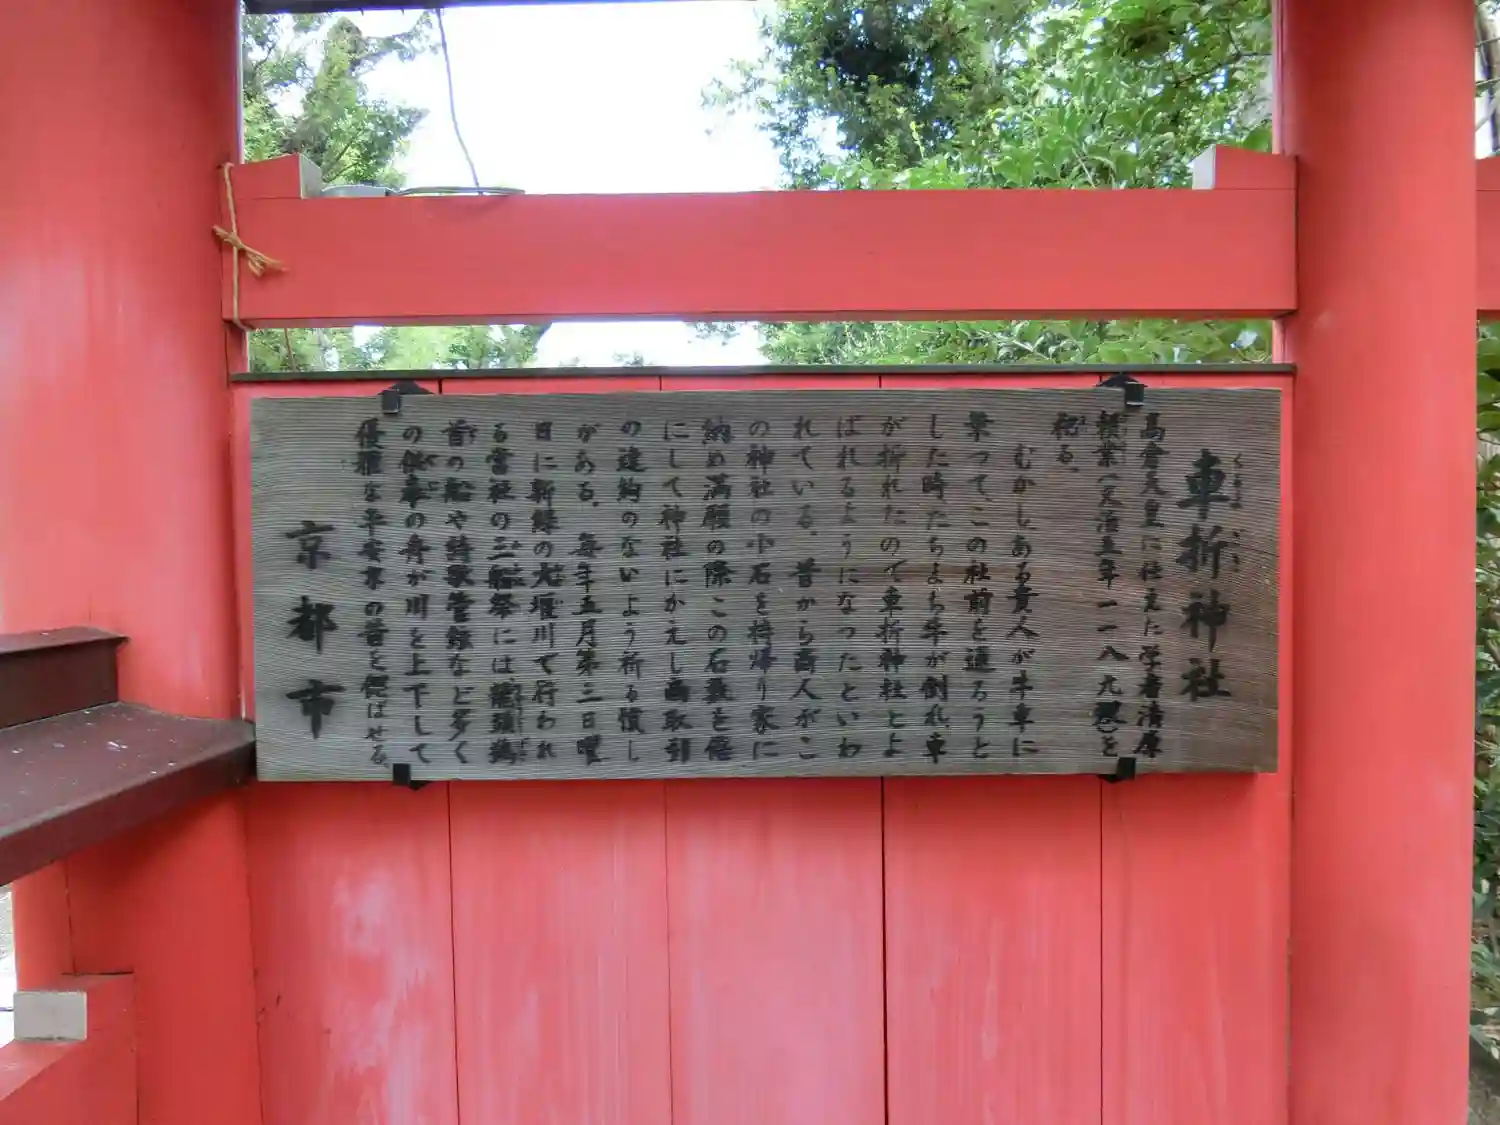 車折神社
くるまざき
高倉天皇に仕えた学者清原
頼業(文治五年一一八九歿)を
祀る。
むかしある貴人が牛車に
乗つて、この社前を通ろうと
した時たちまち牛が倒れ、車
が折れたので車折神社とよ
ばれるようになつたといわ
れている。昔から商人がこ
の神社の小石を持帰り家に
納め満願の際この石数を倍
にして神社にかえし商取引
の違約のないよう祈る慣し
がある。毎年五月第三日曜
日に新緑の大堰川で行われ
る當社の三船祭には龍頭鷁
首の船や詩歌管絃など多く
の供奉の舟が川を上下して
優雅な平安京の昔を偲ばせる。
京都市